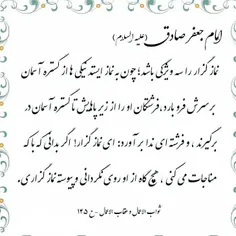 امام جعفر صادق (علیه السلام)
نماز گزار را سه ویژگی باشد؛ چون به نماز ایستد نیکی ها از گستره آسمان
بر سرش فرو بارد، فرشتگان او را از زیر پاهایش تا گستره آسمان در
برگیرند، و فرشته ای ندا برآورد: ای نماز گزار! اگر بدانی که با که
مناجات می کنی، هیچ گاه از او روی نگردانی و پیوسته نماز گزاری.
ثواب الاعمال و عقاب الاعمال - ج ۱۴۵